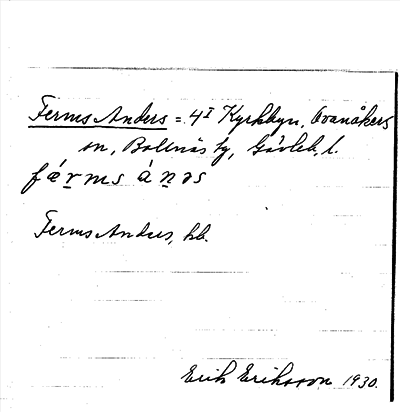 Ferms Anders = 4^I Kyrkbyn, Ovanåkers
sn, Bollnäs tg, Gävleb. l.
fǽrms ánəs
Ferms Anders, hb.
Erik Eriksson 1930.